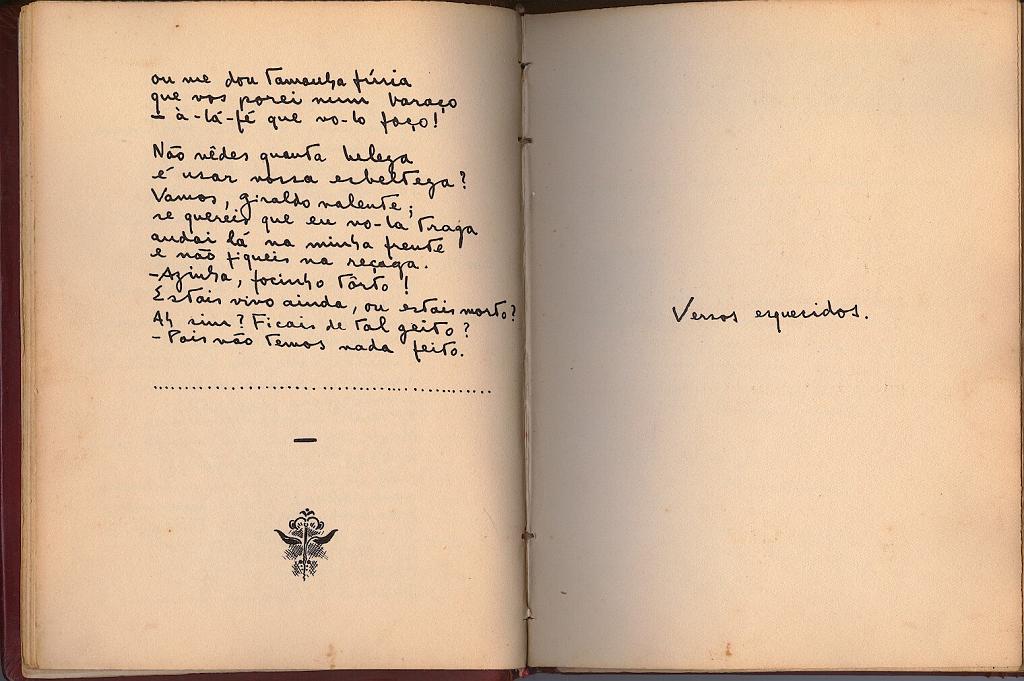 ou me dou tamanha fúria
que vos porei num baraço
– à-lá-fé que vo-lo faço!
Não vêdes quanta beleza
é usar vossa esbelteza?
Vamos, Giraldo valente;
se quereis que eu vo-la traga
andai lá na minha frente
e não fiqueis na reçaga.
-Azinha, focinho tôrto!
Estais vivo ainda, ou estais morto?
Ah sim? Ficais de tal geito?
-Pois não temos nada feito.
Versos esquecidos.